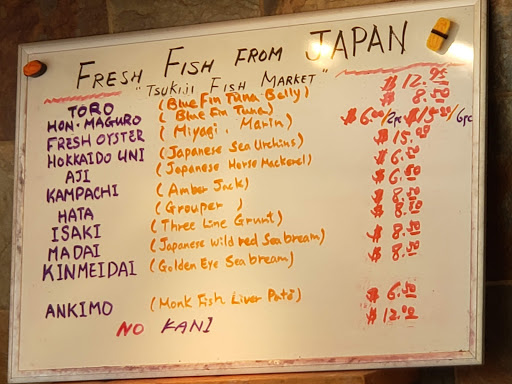 FRESH FISH FROM JAPAN
"TSUKIJI FISH MARKET"
TORO (Blue Fin Tuna Belly) $12.95
HON-MAGURO (Blue Fin Tuna) $8.50
FRESH OYSTER (Miyagi, Marin) $6.00/2pc /6pc
HOKKAIDO UNI (Japanese Sea Urchins) $15.00
AJI (Japanese Horse Mackerel) $6.50
KAMPACHI (Amber Jack) $6.50
HATA (Grouper ) $8.50
ISAKI (Three Line Grunt) $8.50
MADAI (Japanese Wild red Seabream) $8.50
KINMEIDAI (Golden Eye Seabream) $8.50
ANKIMO (Monk Fish Liver Pate) $6.50
NO KANI $12.00